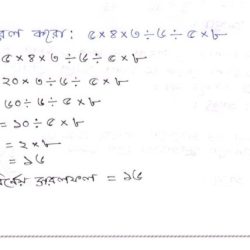 সরল করো: ৫×৪×৩÷৬÷৫×৮
৫×৪×৩÷৬÷৫×৮
২০×৩÷৬÷৫×৮
৬০÷৬÷৫×৮
=১০÷৫×৮
=২×৮
=১৬
নির্ণেয় সরলফল = ১৬